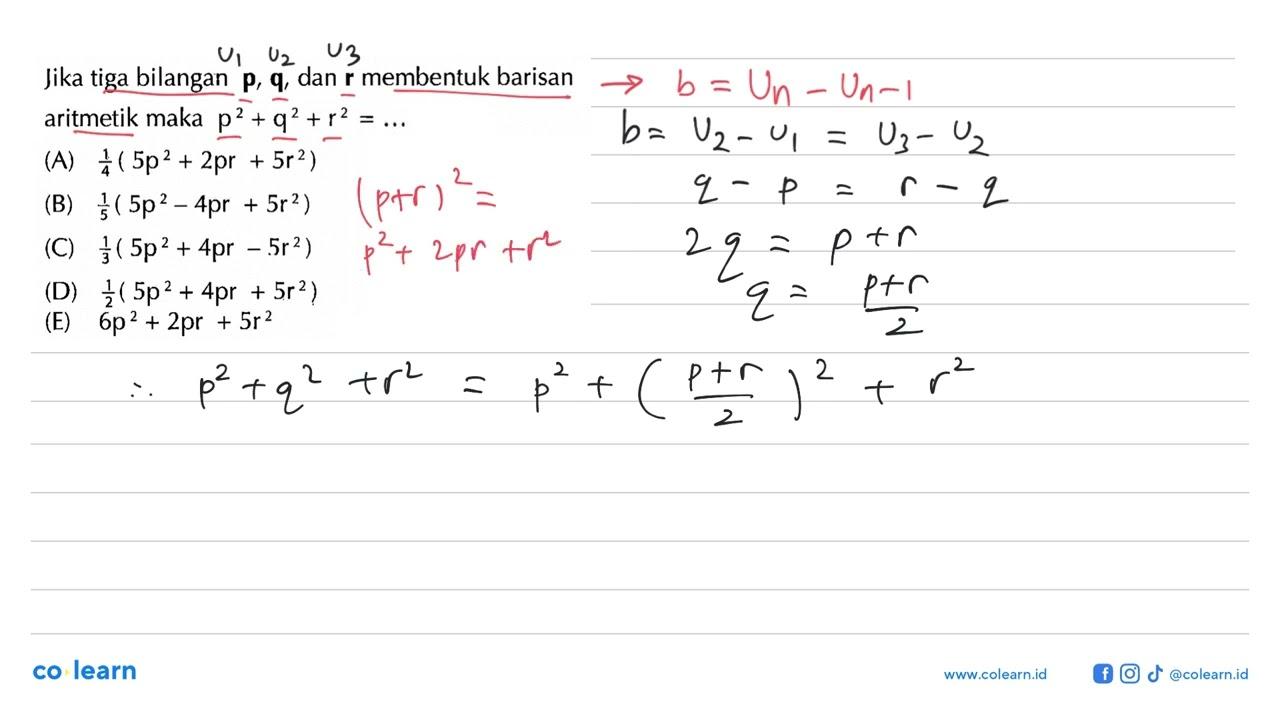 U1 U2 U3
Jika tiga bilangan p, q, dan r membentuk barisan
aritmetik maka p² + q² + r² = ...
(A) 1/4 ( 5p² + 2pr + 5r² )
(B) 1/5 ( 5p² – 4pr + 5r² )
(C) 1/3 ( 5p² + 4pr – 5r² )
(D) 1/2 ( 5p² + 4pr + 5r² )
(E) 6p² + 2pr + 5r²
(p+r)² =
p² + 2pr + r²
→ b = Un – Un–1
b = U2 – U1 = U3 – U2
q – p = r – q
2q = p + r
q = (p+r)/2
∴ p² + q² + r² = p² + ((p+r)/2)² + r²
co learn
www.colearn.id
@colearn.id